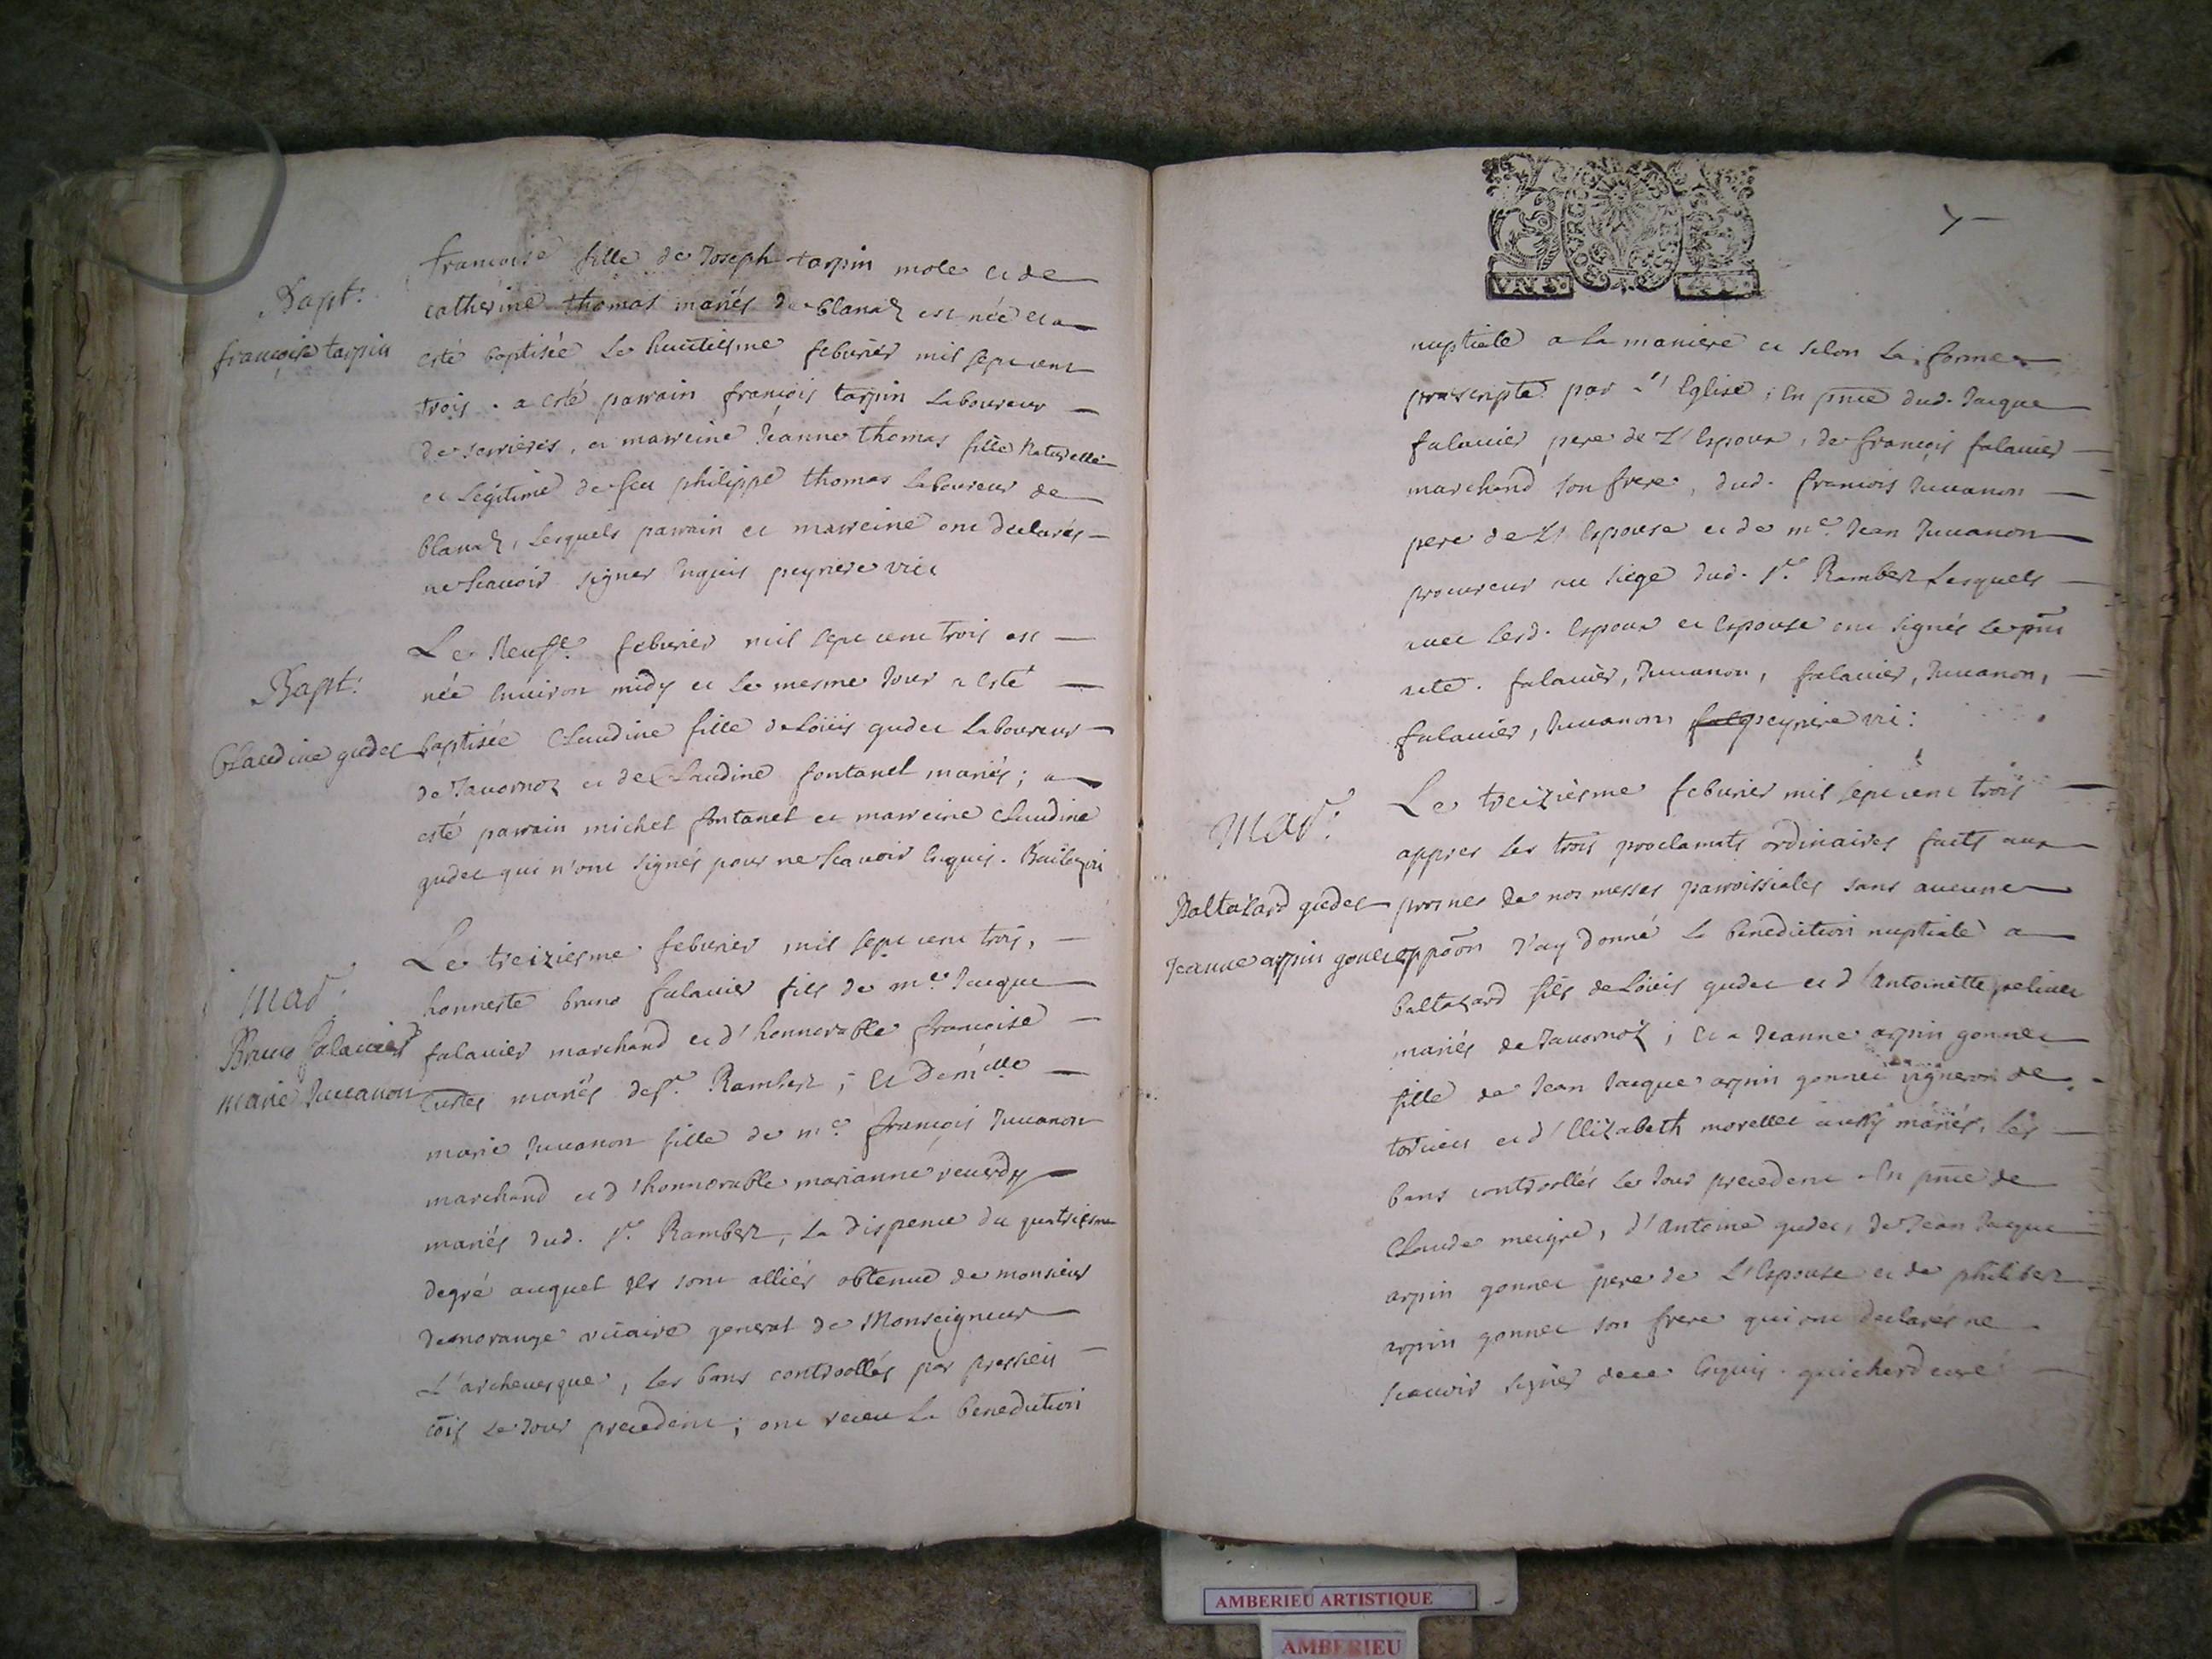 Bapt:
françoise tarpin
francoise fille de Joseph tarpin mole et de
catherine thomas mariés de blanaz est née et a
esté baptisée le huitiesme feburier mil sept cent
trois . a esté parrain françois tarpin laboureur
de serrieres, et marreine Jeanne thomas fille Naturelle
et Legitime de feu philippe thomas laboureur de
blanaz, Lesquels parrain et marreine ont declarés
ne scauoir signer enquis peyriere vic
Bapt:
Claudine gudet
Le Neufe. feburier mil sept cent trois est
née enuiron midy et le mesme Jour a esté
baptisée Claudine fille de Loüis gudet laboureur
de Jauornoz et de Claudine fontanel mariés; a
esté parrain michel fontanel et marreine Claudine
gudet qui n'ont signés pour ne scauoir enquis.
Mar:
Bruno falauier
marie Juuanon
Le treiziesme feburier mil sept cent trois,
honneste bruno falauier fils de me. Jacque
falauier marchand et d'honnorable francoise
mariés de st. Rambert; et Demlle
marie Juuanon fille de me. françois Juuanon
marchand et d'honnorable marianne reuerdy
mariés dud. st. Rambert, la dispence du quatriesme
degré auquel ils sont alliés obtenue de monsieur
demorange vicaire general de Monseigneur
L'archeuesque, les bans controollés par
le Jour precedent; ont receu la benediction
7
nuptiale a la maniere et selon la forme
prescripte par l'Eglise; en pnce dud. Jacque
falauier pere de L'Espoux, de françois falauier
marchand son frere, dud. francois Juuanon
pere de L'Espouse et de me. Jean Juuanon
procureur au siege dud. st. Rambert Lesquels
auec lesd. Espoux et Espouse ont signés le pnt
acte. falauier, Juuanon, falauier, Juuanon,
falauier, Juuanon peyriere vic:
Mar:
Baltazard gudet
Jeanne arpin gonet
Le treiziesme feburier mil sept cent trois
appres les trois proclamats ordinaires faits aux
prosnes de nos messes parroissiales sans aucune
oppoõn J'ay donné la benediction nuptiale a
baltazard fils de Loüis gudet et d'Antoinette
mariés de Jauornoz; et a Jeanne arpin gonnet
fille de Jean Jacque arpin gonnet vigneron de
torcieu et d'Elizabeth morellet aussy mariés, les
bans controollés le Jour precedent en pnce de
Claude meigre, d'Antoine gudet, de Jean Jacque
arpin gonnet pere de L'Espouse et de philibert
arpin gonnet son frere qui ont declarés ne
scauoir signer de ce enquis. guicherd curé
AMBERIEU ARTISTIQUE
AMBERIEU